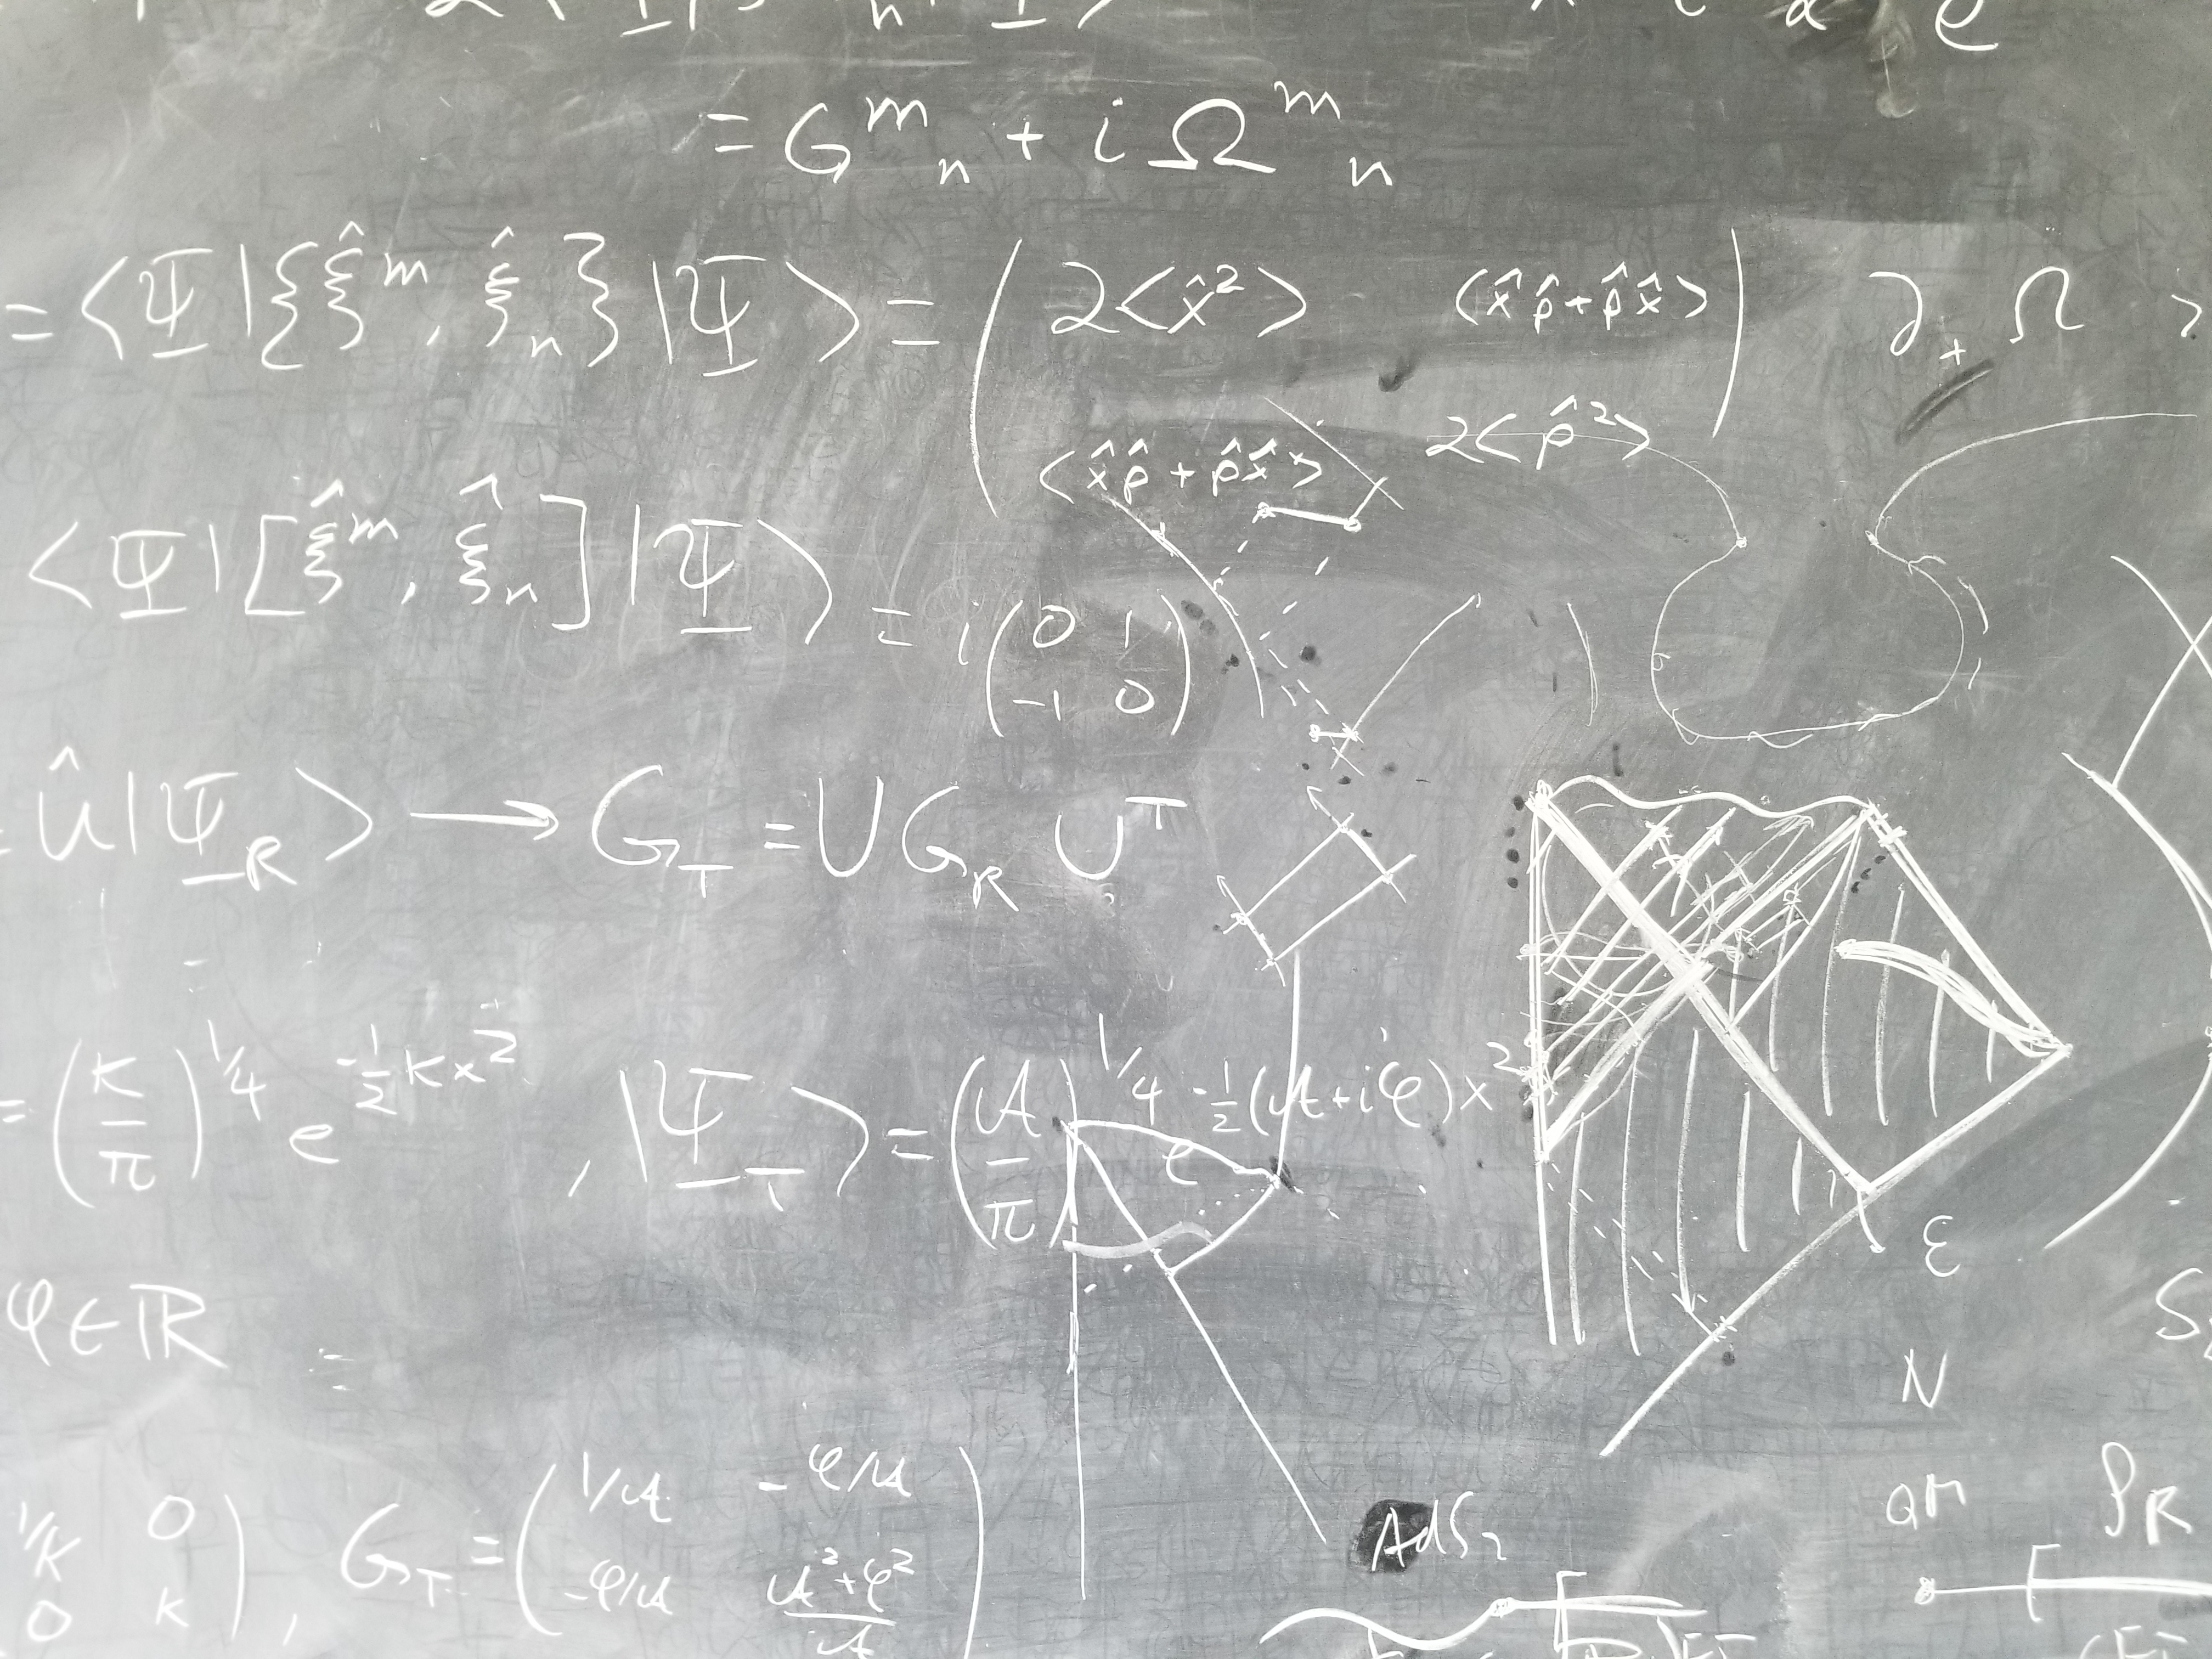 = G^m_n + i Ω^m_n
= ⟨Ψ|{ξ̂^m, ξ̂_n}|Ψ⟩ = ( 2⟨x̂²⟩ ⟨x̂p̂+p̂x̂⟩
⟨x̂p̂+p̂x̂⟩ 2⟨p̂²⟩ )
∂₊Ω >
⟨Ψ|[ξ̂^m, ξ̂_n]|Ψ⟩ = i ( 0 1
-1 0 )
= Û|Ψ_R⟩ → G_T = U G_R U^T
= (K/π)^{1/4} e^{-½Kx²}, |Ψ_T⟩ = (A/π)^{1/4} e^{-½(A+iφ)x²}
φ∈ℝ
1/K 0
0 K ), G_T = ( 1/A -φ/A
-φ/A (A²+φ²)/A )
ε
N
AdS₂
QM ρ_R